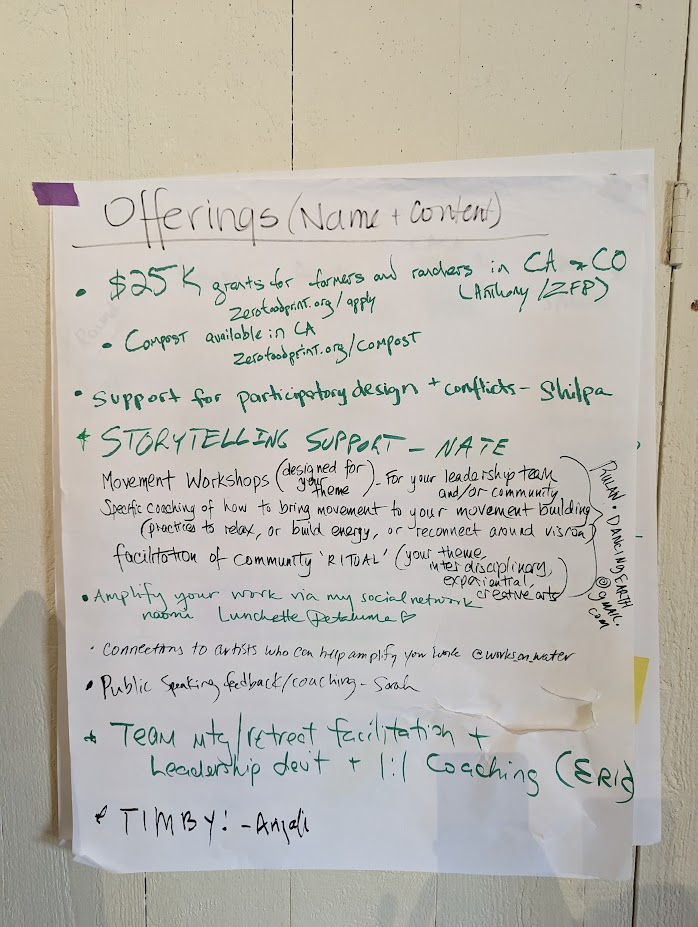 Offerings (Name + Content)
• $25K grants for farmers and ranchers in CA & CO
zerofoodprint.org/apply (Anthony/ZFP)
• Compost available in CA
zerofoodprint.org/compost
• Support for participatory design + conflicts - Shilpa
* STORYTELLING SUPPORT - NATE
Movement Workshops (designed for your theme) - For your leadership team and/or community
Specific coaching of how to bring movement to your movement building
(practices to relax, or build energy, or reconnect around vision)
facilitation of community 'RITUAL' (your theme,
interdisciplinary,
experiential,
creative arts)
DANCINGEARTH
@gmail.
com
• Amplify your work via my social network
naomi Lunchette Petaluma ♡
• Connections to artists who can help amplify your work @works_on_water
• Public Speaking feedback/coaching - Sarah
* Team mtg/retreat facilitation +
Leadership devt + 1:1 Coaching (ERIC)
* TIMBY! - Anjali